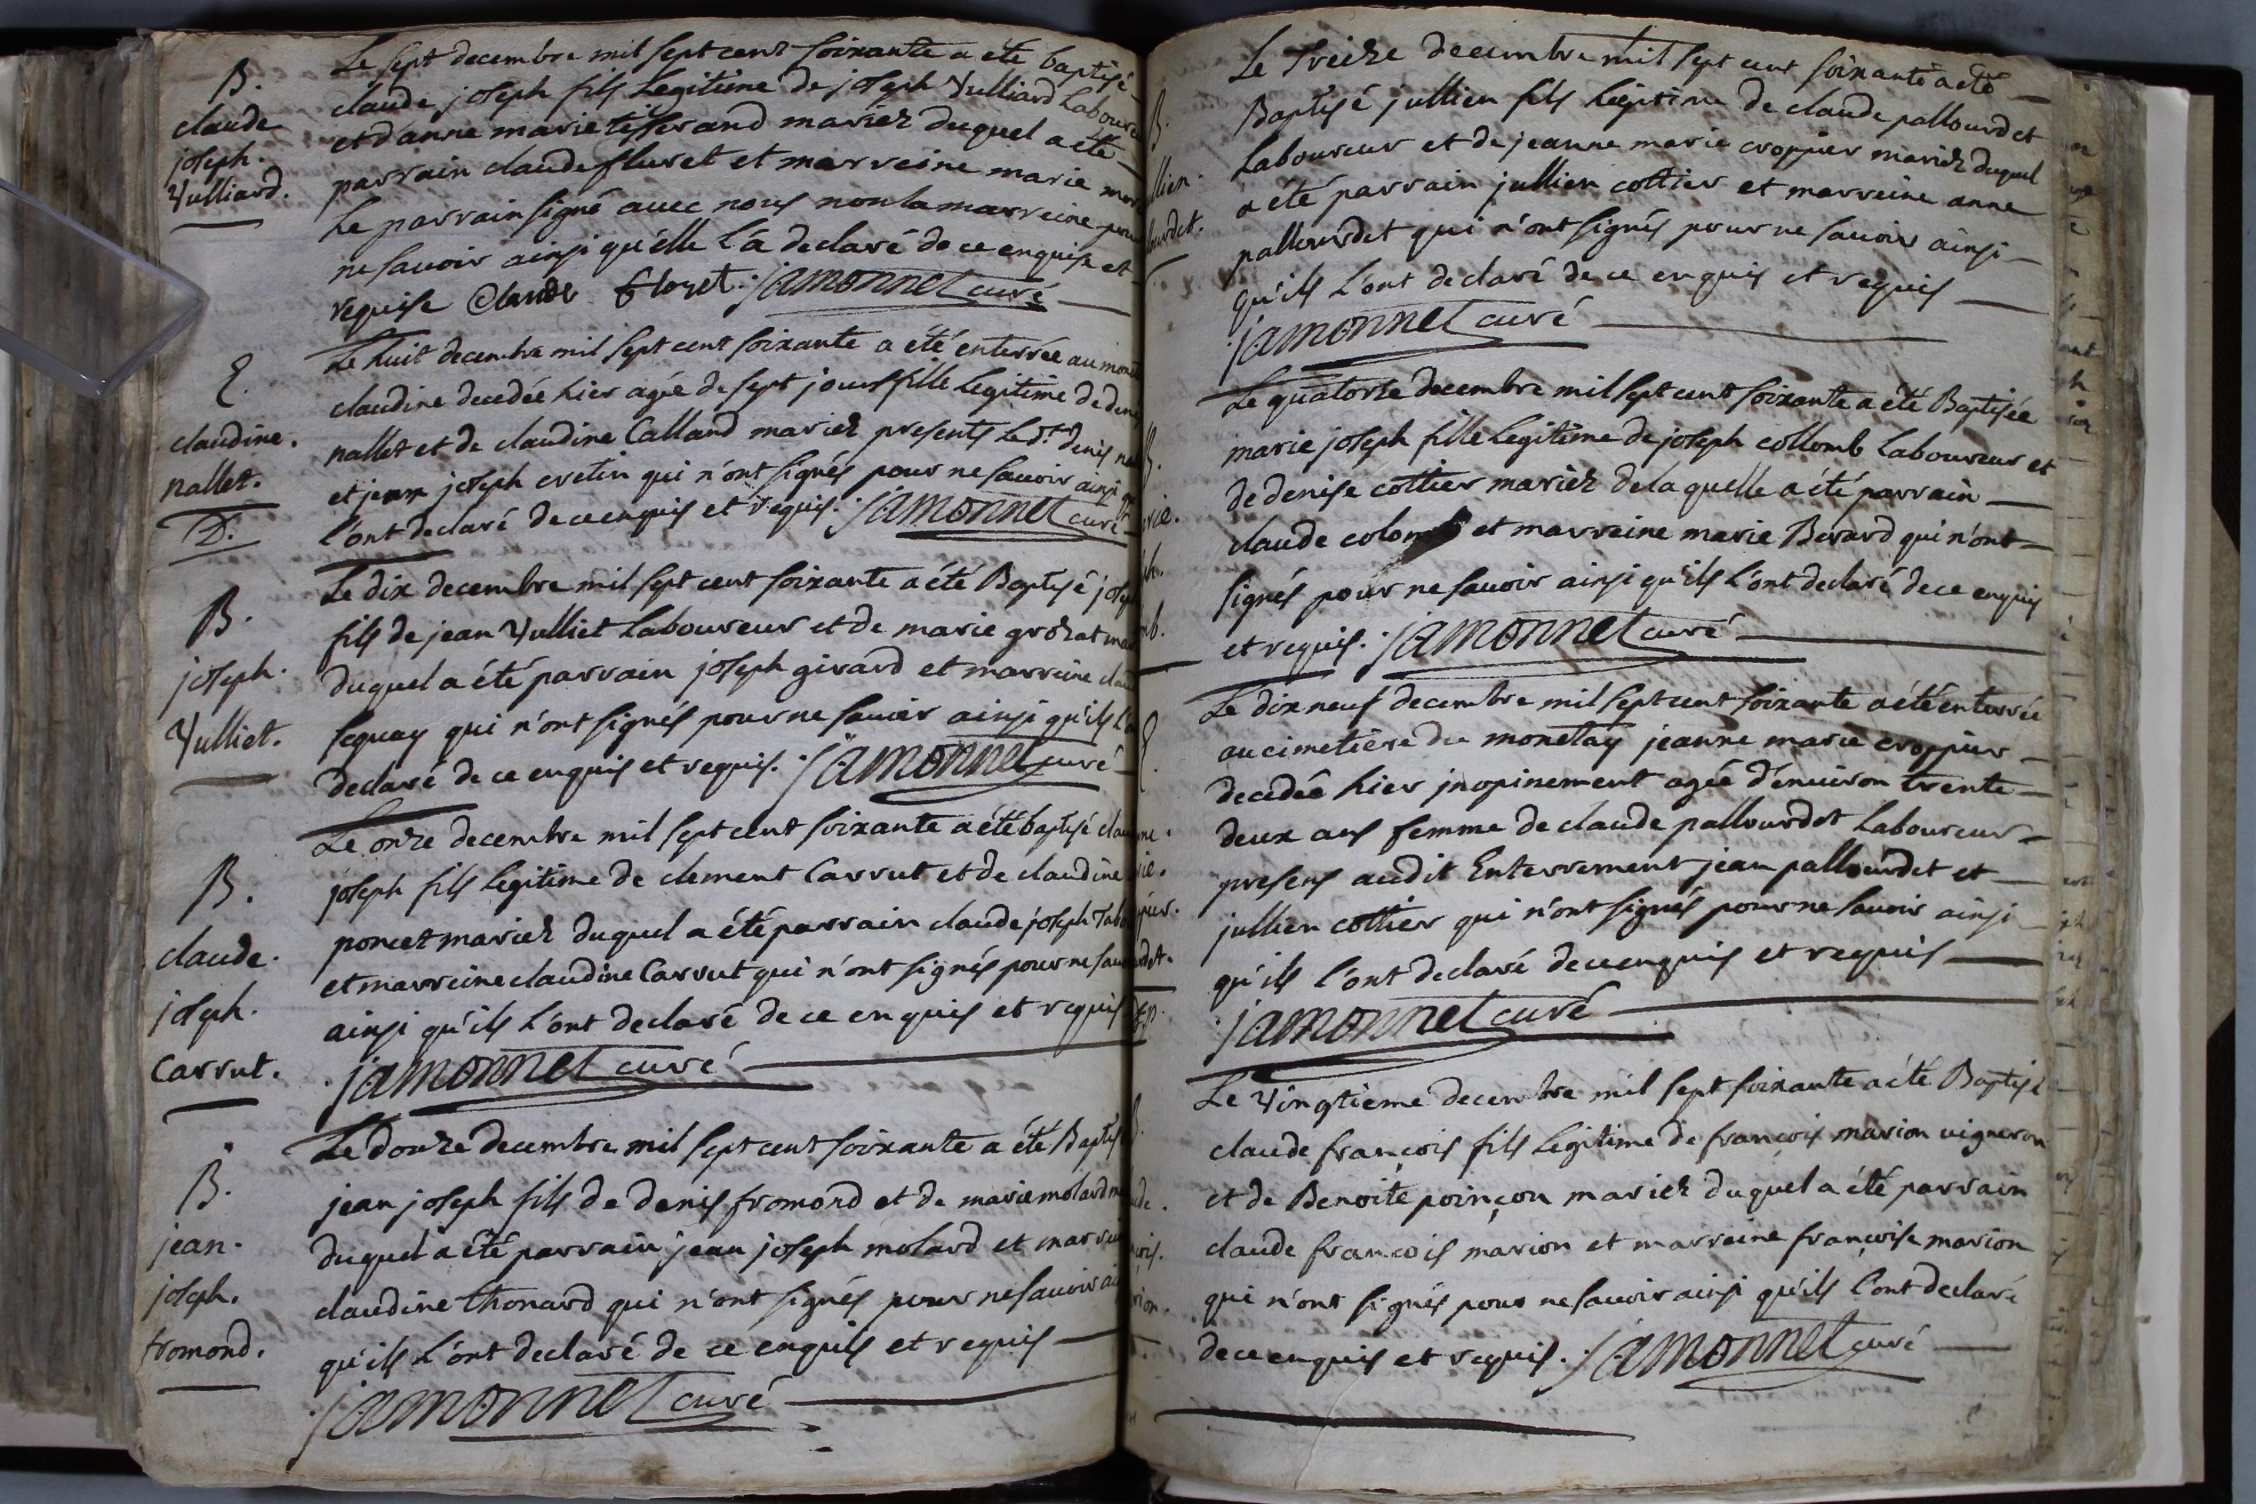 B.
claude
joseph.
Vulliard.
Le sept decembre mil sept cent soixante a été baptisé
claude joseph fils Legitime de joseph Vulliard Laboureu
et d'anne marie tisserand mariez duquel a été
parrain claude fluret et marreine marie
Le parrain signé avec nous non la marreine pour
ne savoir ainsi qu'elle l'a declaré de ce enquise et
requise Claude Floret. jamonnet curé
E.
claudine.
nallet.
D.
Le huit decembre mil sept cent soixante a été enterrée au
claudine decedée hier agée de sept jours fille Legitime de
nallet et de claudine Calland mariez presents Le dt. denis
et jean joseph cretin qui n'ont signés pour ne savoir ainsi
l'ont declaré de ce enquis et requis. jamonnet curé
B.
joseph.
Vulliet.
Le dix decembre mil sept cent soixante a été Baptisé joseph
fils de jean Vulliet Laboureur et de marie grozat
duquel a été parrain joseph girard et marreine
seguay qui n'ont signés pour ne savoir ainsi qu'ils
declaré de ce enquis et requis. jamonnet curé
B.
claude.
joseph.
Carrut.
Le onze decembre mil sept cent soixante a été baptisé
joseph fils Legitime de clement Carrut et de claudine
poncet mariez duquel a été parrain claude joseph
et marreine claudine Carrut qui n'ont signés pour ne
ainsi qu'ils l'ont declaré de ce enquis et requis
jamonnet curé
B.
jean.
joseph.
fromond.
Le douze decembre mil sept cent soixante a été Baptisé
jean joseph fils de denis fromond et de marie molard
duquel a été parrain jean joseph molard et marreine
claudine thonard qui n'ont signés pour ne savoir
qu'ils l'ont declaré de ce enquis et requis
jamonnet curé
Le Treize decembre mil sept cent soixante a été
Baptisé jullien fils Legitime de claude pallourdet
Laboureur et de jeanne marie croppier mariez duquel
a été parrain jullien cottier et marreine anne
pallourdet qui n'ont signés pour ne savoir ainsi
qu'ils l'ont declaré de ce enquis et requis
jamonnet curé
Le quatorze decembre mil sept cent soixante a été Baptisée
marie joseph fille Legitime de joseph collomb Laboureur et
de denise cottier mariez de la quelle a été parrain
claude colomb et marreine marie Berard qui n'ont
signés pour ne savoir ainsi qu'ils l'ont declaré de ce enquis
et requis. jamonnet curé
Le dix neuf decembre mil sept cent soixante a été enterrée
au cimetière du monetay jeanne marie croppier
decedée hier inopinement agée d'environ trente
deux ans femme de claude pallourdet Laboureur
presens audit Enterrement jean pallourdet et
jullien cottier qui n'ont signés pour ne savoir ainsi
qu'ils l'ont declaré de ce enquis et requis
jamonnet curé
Le Vingtieme decembre mil sept soixante a été Baptisé
claude françois fils Legitime de françois marion vigneron
et de Benoite poinçon mariez duquel a été parrain
claude françois marion et marreine françoise marion
qui n'ont signés pour ne savoir ainsi qu'ils l'ont declaré
de ce enquis et requis. jamonnet curé